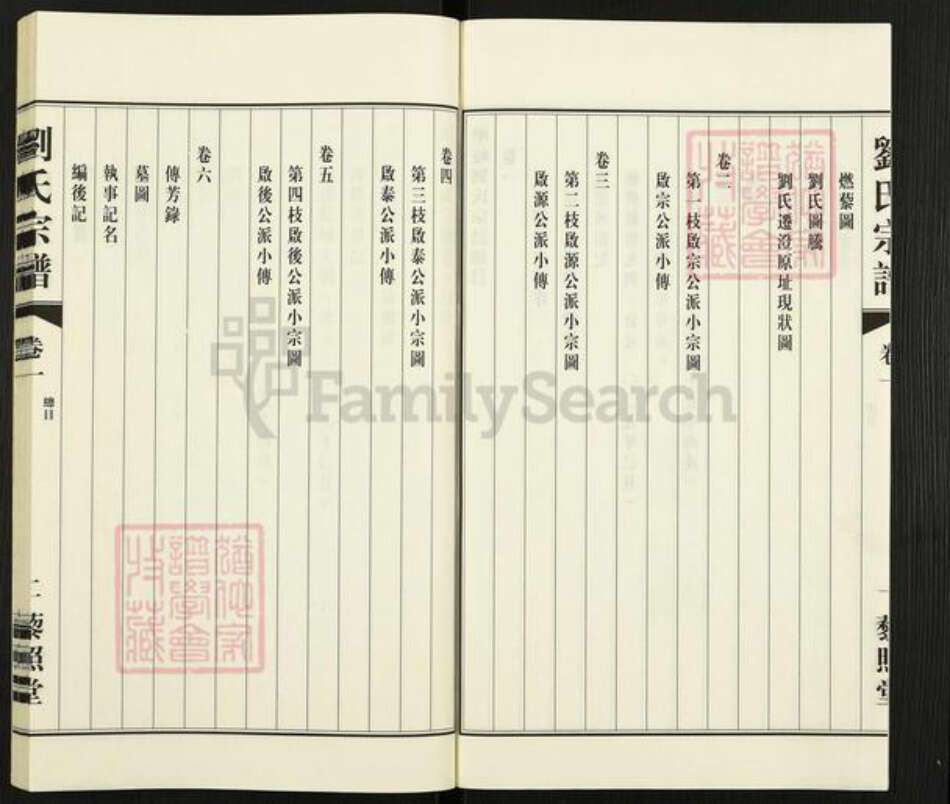 燃藜圖
劉氏圖騰
劉氏遷澄原址現狀圖
卷二
第一枝啟宗公派小宗圖
啟宗公派小傳
卷三
第二枝啟源公派小宗圖
啟源公派小傳
卷四
第三枝啟泰公派小宗圖
啟泰公派小傳
卷五
第四枝啟後公派小宗圖
啟後公派小傳
卷六
傳芳錄
墓圖
執事記名
編後記
劉氏宗譜
卷一
總目
二
藜照堂
劉氏宗譜
卷一
一
藜照堂
譜學會
收藏
譜學會
收藏
FamilySearch